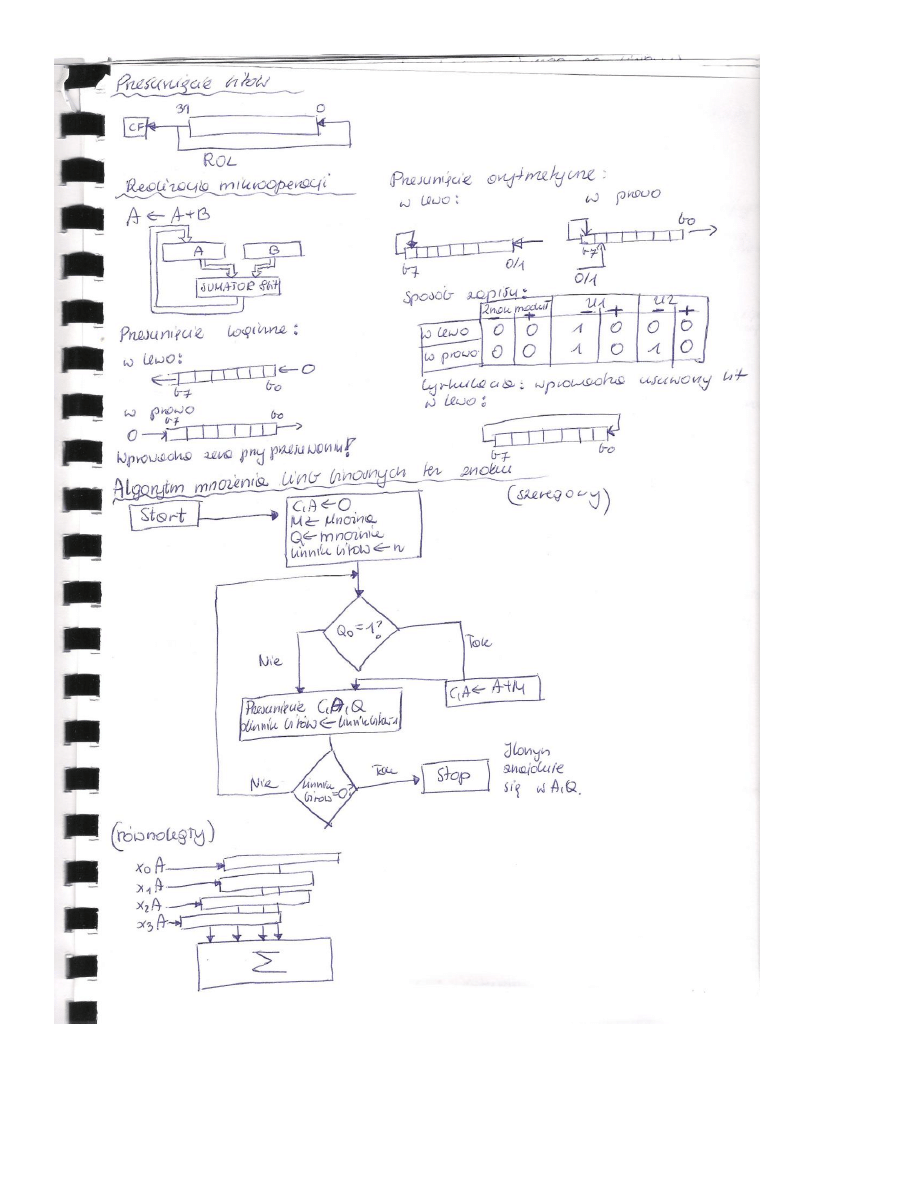 Przesunięcie bitów
31 0
CF
ROL
Realizacja mikrooperacji
A ← A+B
A B
SUMATOR 8bit
Przesunięcie logiczne:
w lewo:
← 0
b7 b0
w prawo
b7 b0
0 →
Wprowadza zera przy przesuwaniu!
Przesunięcie arytmetyczne:
w lewo: w prawo
b0
b7 0/1 b7
0/1
Sposób zapisu:
znak moduł U1 U2
- + - + - +
w lewo 0 0 1 0 0 0
w prawo 0 0 1 0 1 0
Cyrkulacja: wprowadza usuwany bit
w lewo:
b7 b0
Algorytm mnożenia liczb binarnych bez znaku
(szeregowy)
Start
C,A ← 0
M ← mnożna
Q ← mnożnik
licznik bitów ← n
Q0=1?
Nie Tak
C,A ← A+M
Przesunięcie C,A,Q
licznik bitów ← licznik bitów-1
licznik bitów=0?
Nie Tak
Stop
Iloczyn
znajduje
się w A,Q.
(równoległy)
x0A
x1A
x2A
x3A
Σ